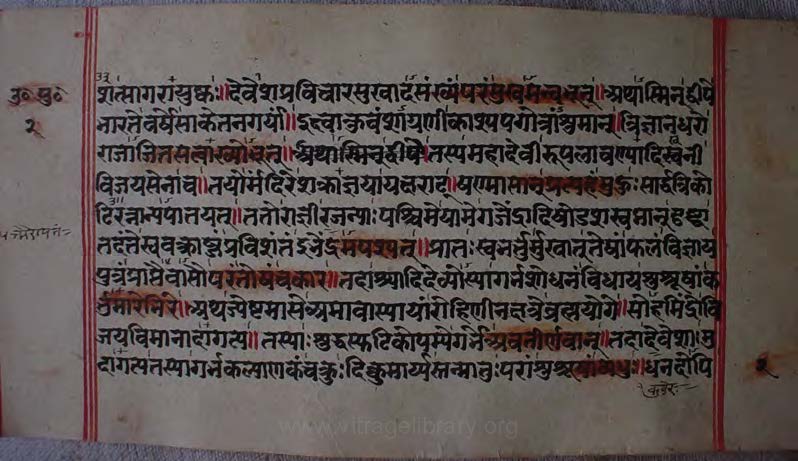 उ० पु०
२
३३
शत्सागरायुष्कः॥देवेशप्रविचारसुखादसंख्यंपरंसुखमन्वभूत्॥अथास्मिन्द्वीपे
भारतेवर्षेसाकेतनगर्यां॥इक्ष्वाकुवंशाग्रणीकाश्यपगोत्रांशुमान्॥त्रिज्ञानधरो
राजाजितसत्वाख्योभूत्॥अथास्मिन्द्वीपे॥तस्यमहादेवीरूपलावण्यादिखनी
विजयसेनाच॥तयोर्मंदिरेशक्राज्ञयायक्षराट्॥षण्मासान्प्रत्यहंमुक्तःसार्द्धत्रिको
टिरत्नान्यपातयत्॥ततोराज्ञीरजन्याःपश्चिमेयामेगजेंद्रादिषोडशस्वप्नान्दृष्ट्वा
तदंतेस्ववक्त्राब्जंप्रविशंतंइभेंद्रमपश्यत्॥प्रातःस्वभर्तुर्मुखात्तेषांफलंविज्ञाय
पुत्रंप्राप्तैवासोपरंतोषंचकार॥तदाश्र्यादिदेव्योस्यागर्भशोधनंविधायशुश्रूषांक
र्तुमारेभिरे॥अथज्येष्टमासेअमावास्यायांरोहिणीनक्षत्रेब्रह्मयोगे॥सोहमिंद्रोवि
जयविमानादागत्य॥तस्याःशुद्धस्फटिकोपमेगर्भेअवतीर्णवान्॥तदादेवेशाःमु
दागत्यतस्यागर्भकल्याणकंचक्रुःदिक्कुमार्यस्तन्मातुःपरांशुश्रूषांव्यधुः॥धनदोपि
कुबेरः
२
www.vitragelibrary.org